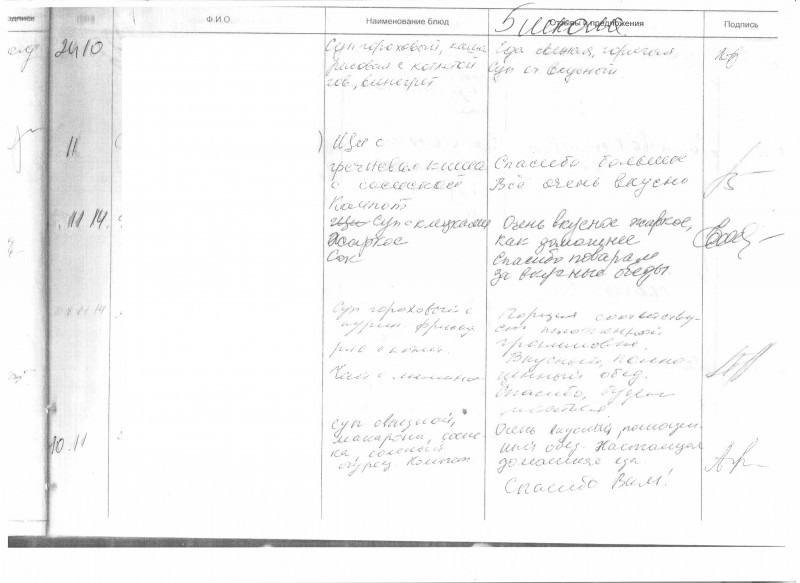 Ф.И.О.
Наименование блюд
Отзывы и предложения
Подпись
24 10
Суп гороховый, каша
рисовая с котлетой
гов, винегрет
Еда свежая, горячая
Суп вкусный
11
Щи с
гречневая каша
с сосиской
Компот
Спасибо большое
Всё очень вкусно
11 14
Суп с клецками
Жаркое
Сок
Очень вкусное жаркое,
как домашнее
Спасибо поварам
за вкусные обеды
11 14
Суп гороховый с
курин. фрикад
рис с котлет.
Чай с
Порция соответству-
ет положенной
граммовке.
Вкусный, полно-
ценный обед.
Спасибо, будем
20.11
суп овощной,
макароны, сосис-
ка соленый
огурец. Компот
Очень вкусный, полноцен-
ный обед. Настоящая
домашняя еда
Спасибо Вам!